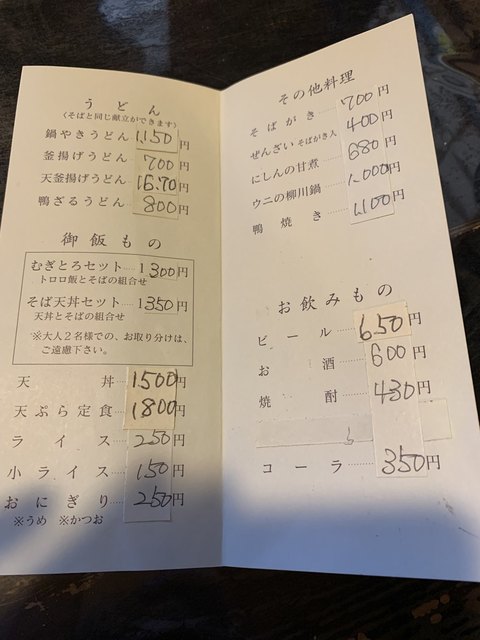 うどん
〈そばと同じ献立ができます〉
鍋やきうどん 1,150円
釜揚げうどん 700円
天釜揚げうどん 1670円
鴨ざるうどん 800円
御飯もの
むぎとろセット 1300円
トロロ飯とそばの組合せ
そば天丼セット 1350円
天丼とそばの組合せ
※大人2名様での、お取り分けは、
ご遠慮下さい。
天丼 1500円
天ぷら定食 1800円
ライス 250円
小ライス 150円
おにぎり 250円
※うめ ※かつお
その他料理
そばがき 700円
ぜんざい そばがき入 400円
にしんの甘煮 680円
ウニの柳川鍋 1,000円
鴨焼き 1,100円
お飲みもの
ビール 650円
お酒 600円
焼酎 430円
コーラ 350円